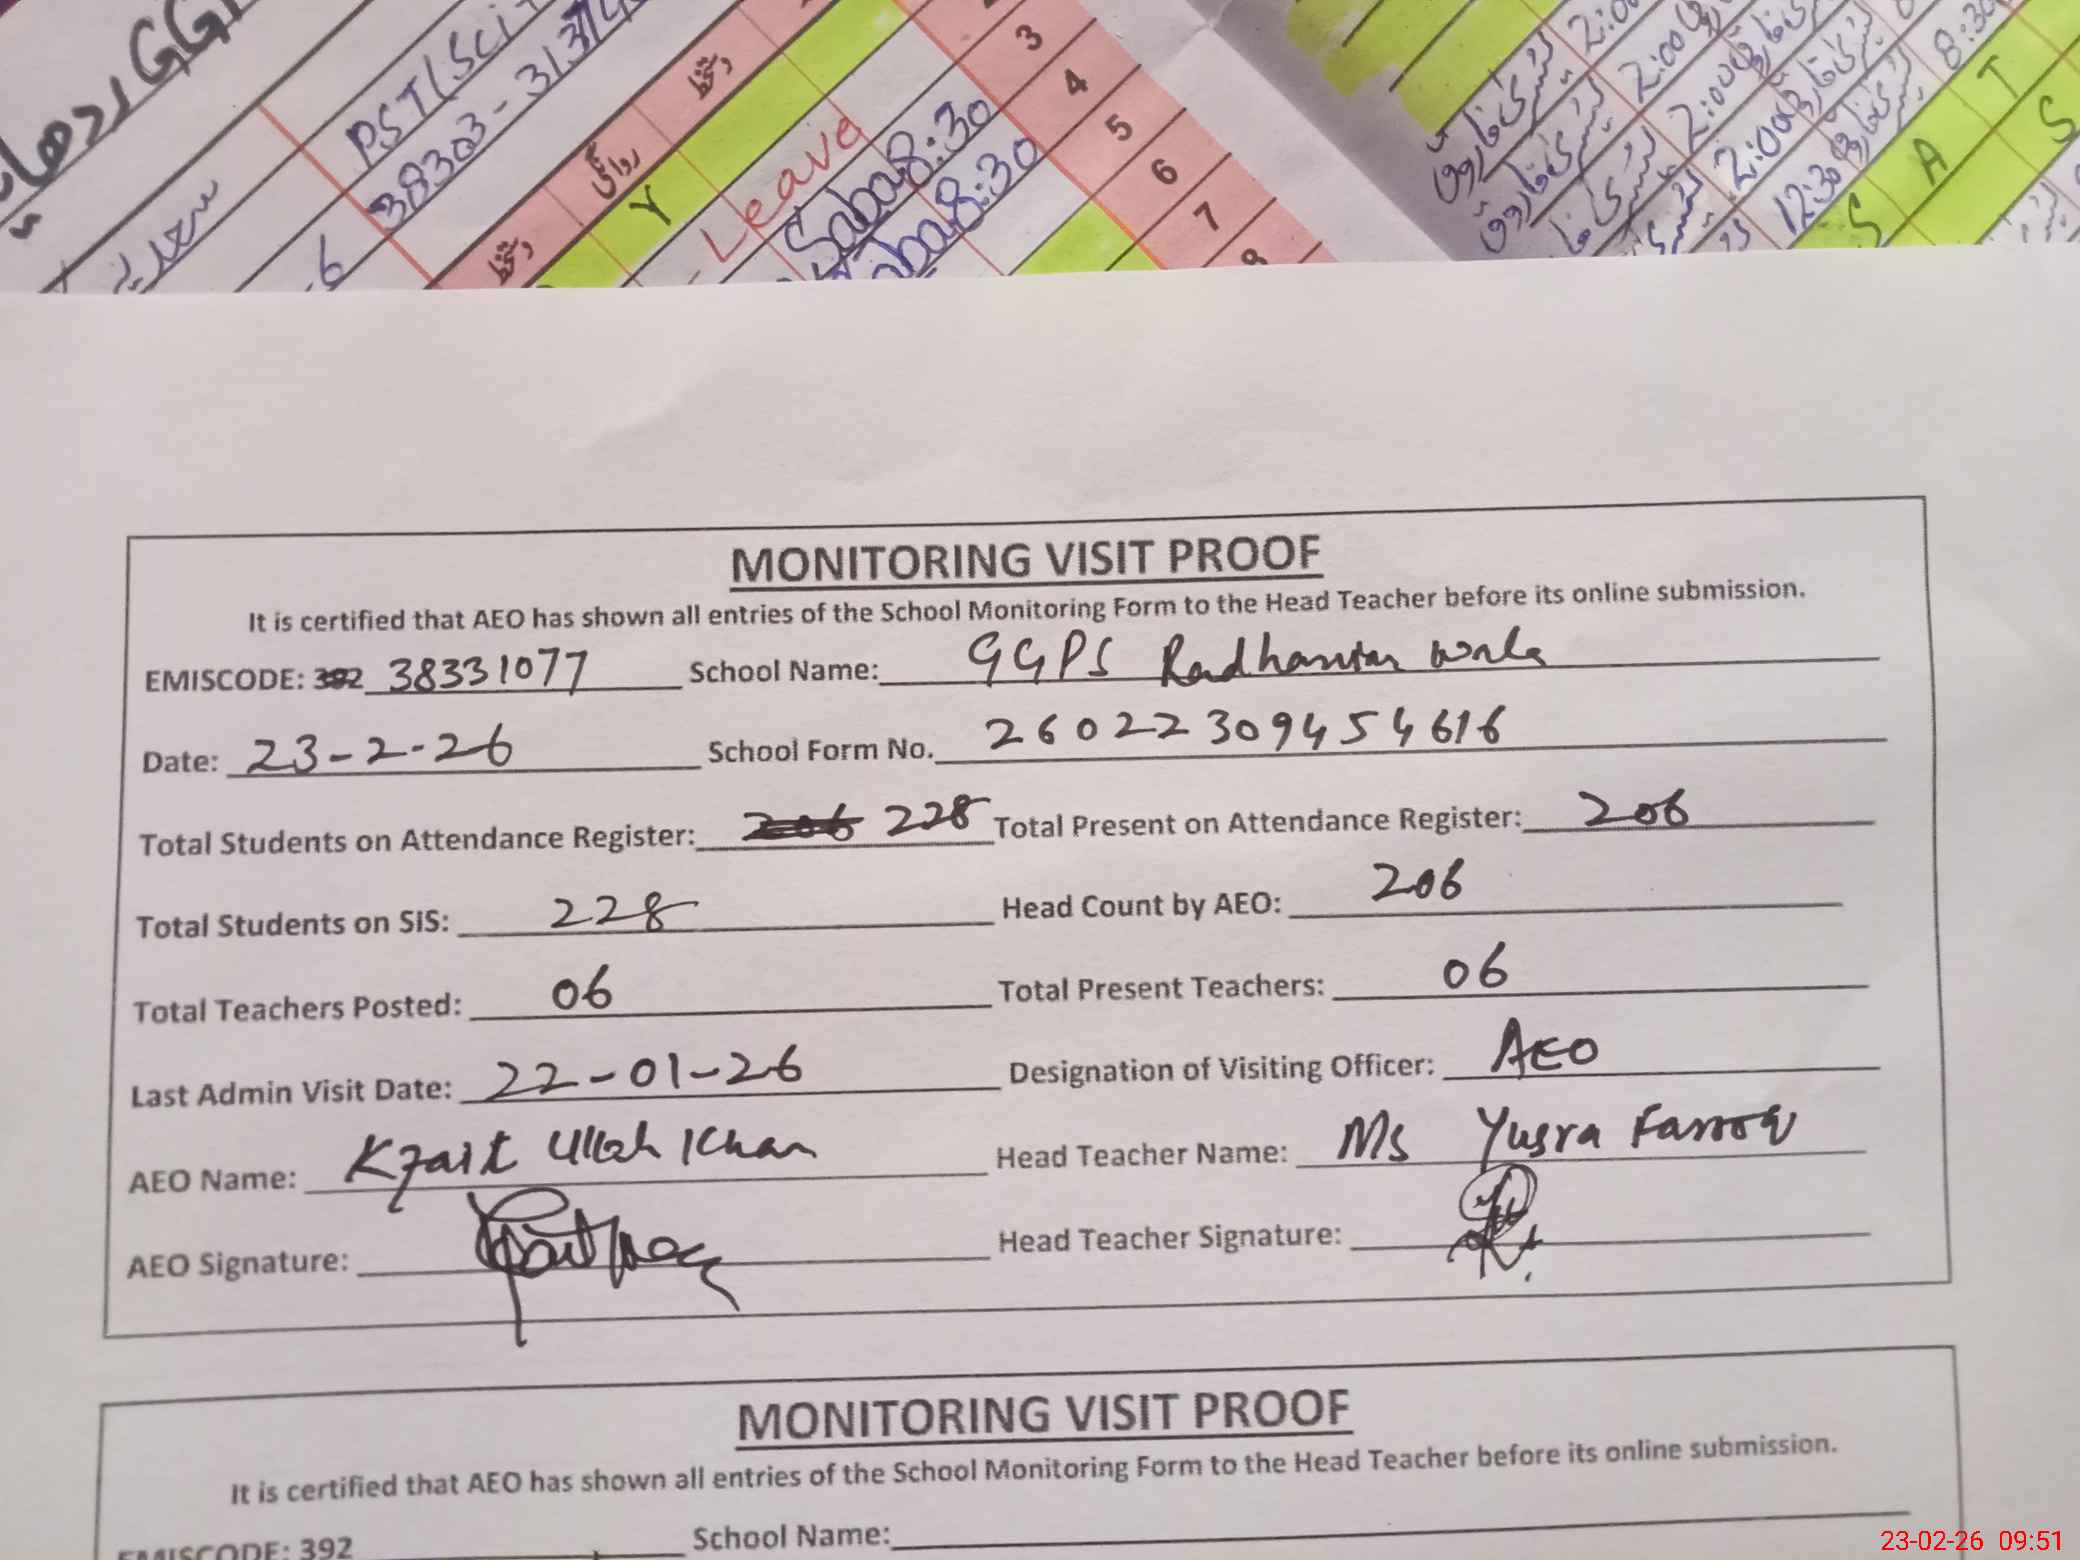 GG
PST(Sci
38303-3137
Leave
Saba 8:30
8:30
روانگی
دستخط
دستخط
3
4
5
6
7
8
2:00
2:00
2:00
2:00
12:30
8:30
S A T
S
MONITORING VISIT PROOF
It is certified that AEO has shown all entries of the School Monitoring Form to the Head Teacher before its online submission.
EMISCODE: 392 38331077 School Name: GGPS Radhanian wala
Date: 23-2-26 School Form No. 26022309454616
Total Students on Attendance Register: 206 228 Total Present on Attendance Register: 206
Total Students on SIS: 228 Head Count by AEO: 206
Total Teachers Posted: 06 Total Present Teachers: 06
Last Admin Visit Date: 22-01-26 Designation of Visiting Officer: AEO
AEO Name: Kfait Ullah Khan Head Teacher Name: Ms Yusra Farooq
AEO Signature: Head Teacher Signature:
MONITORING VISIT PROOF
It is certified that AEO has shown all entries of the School Monitoring Form to the Head Teacher before its online submission.
EMISCODE: 392 School Name:
23-02-26 09:51